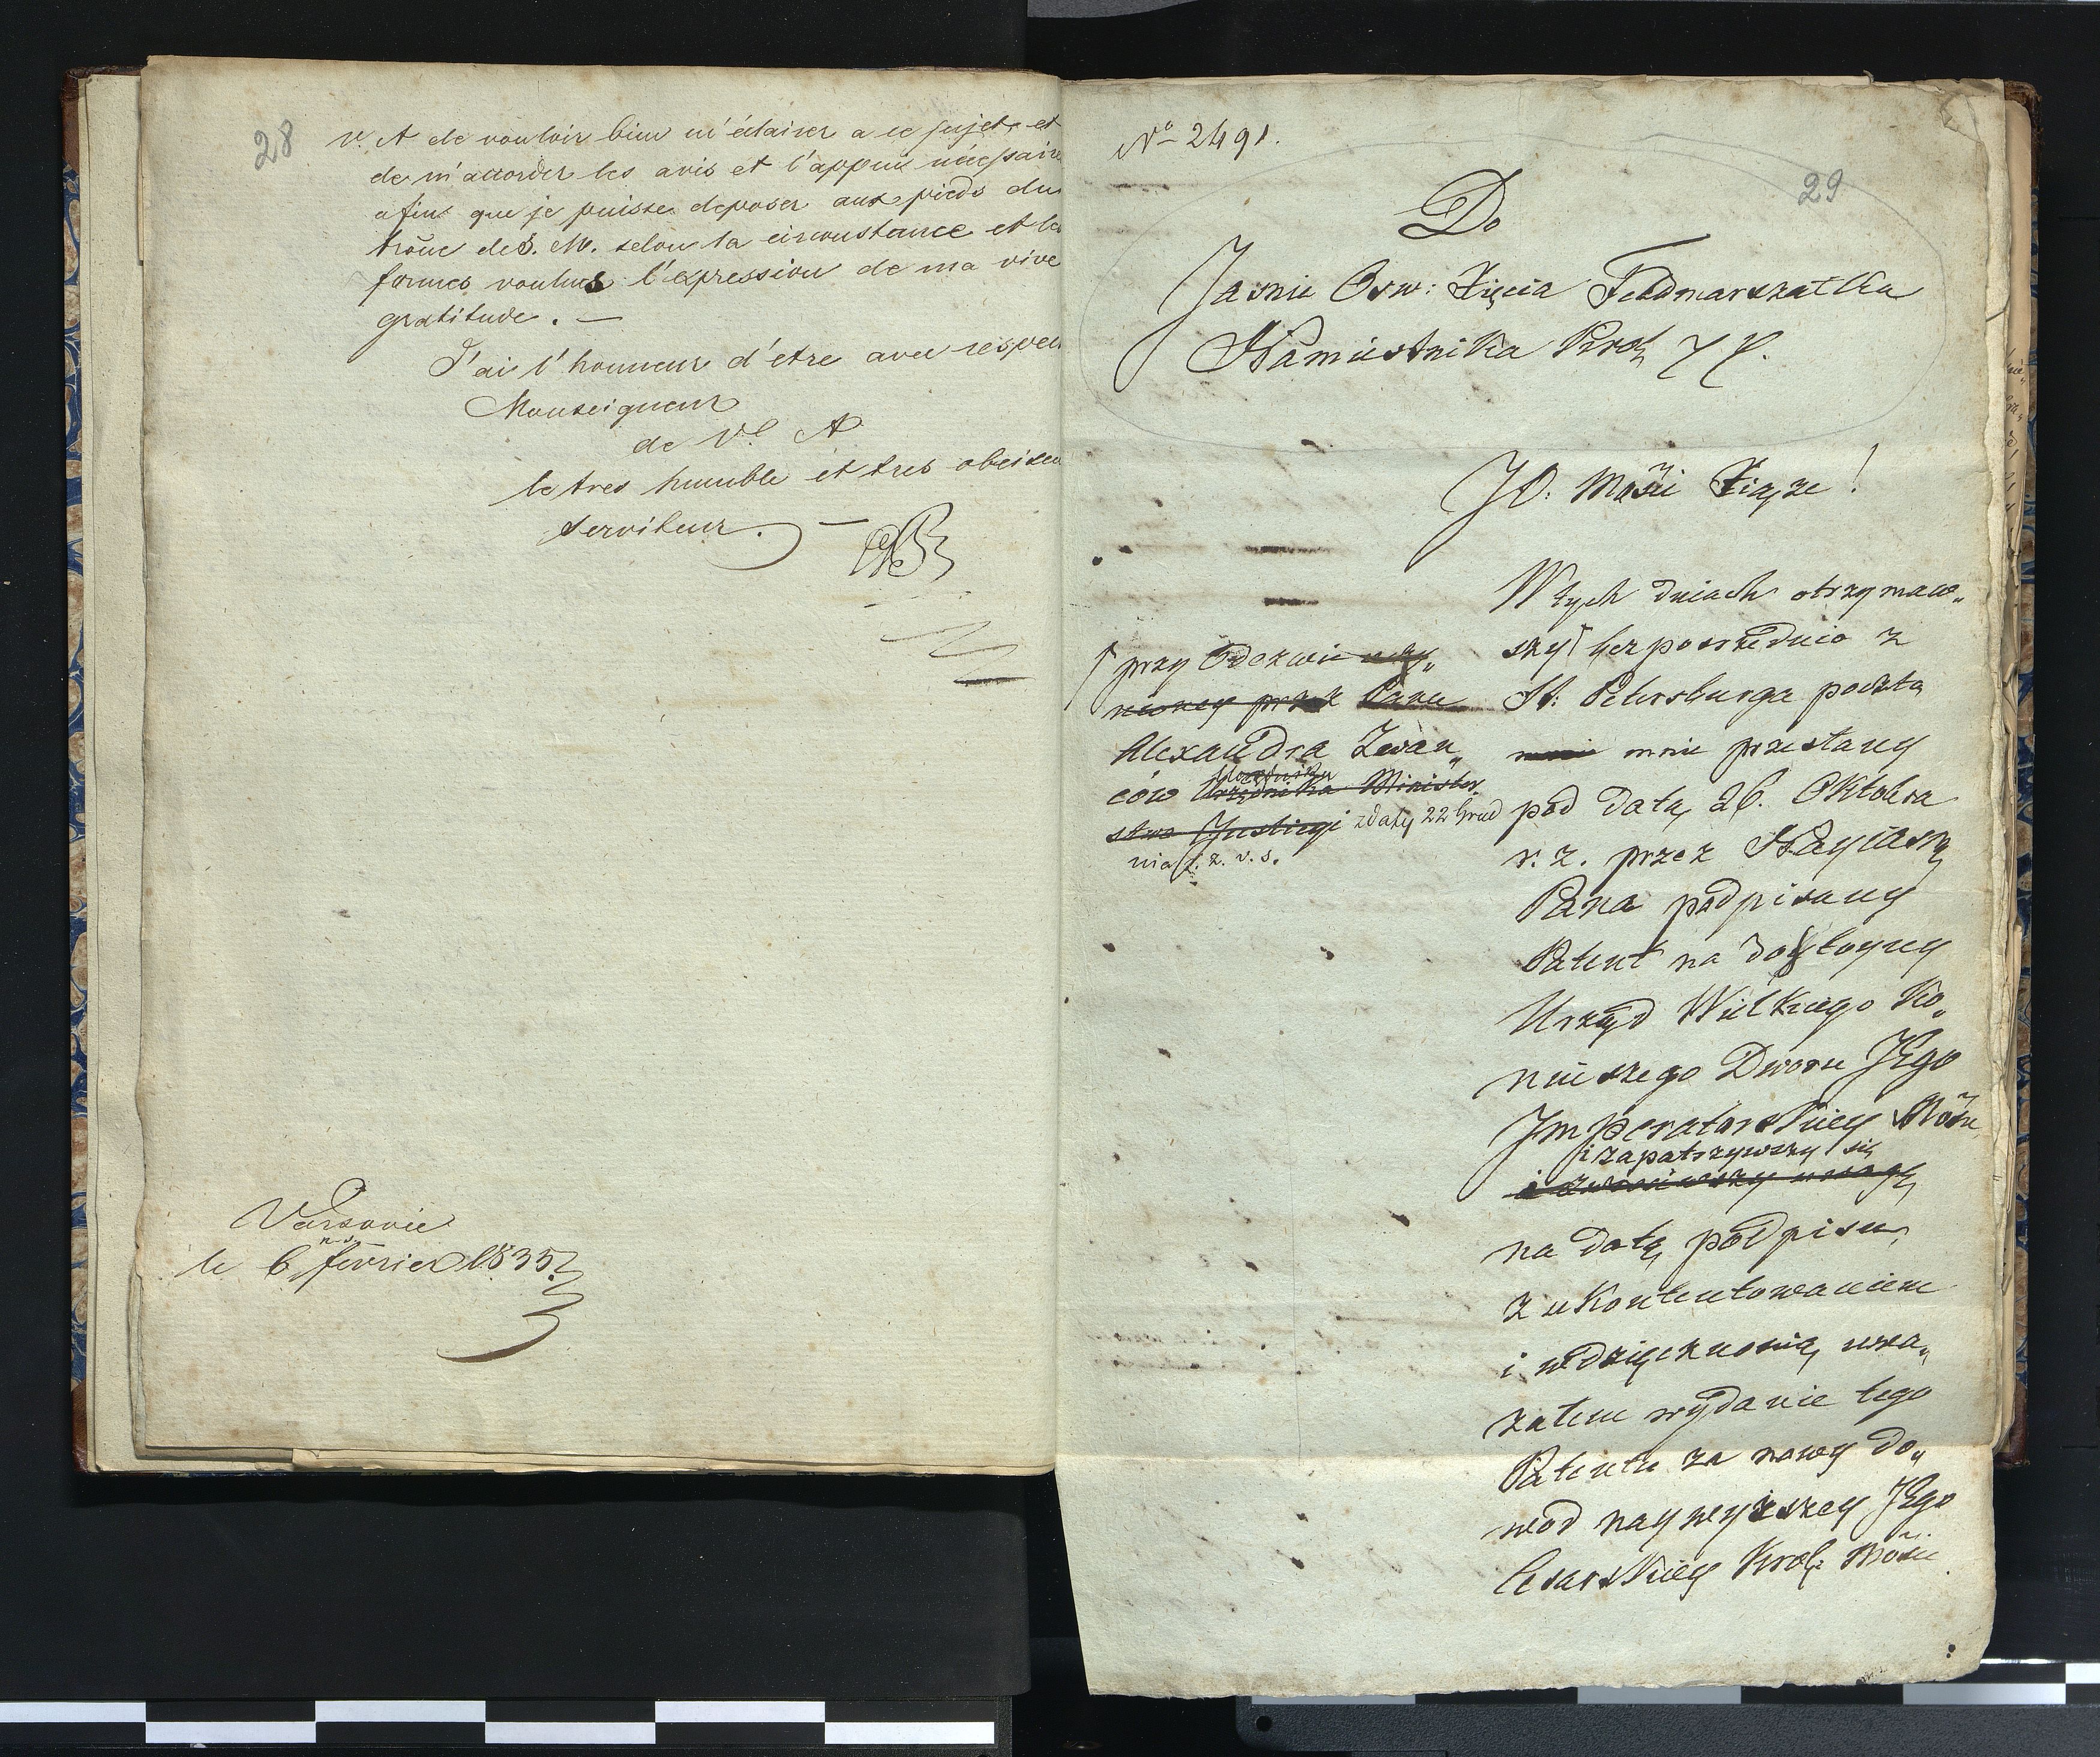 28
V. A de vouloir bien m'éclairer a ce sujet, et
de m'accorder les avis et l'appui nécessaire
afin que je puisse deposer aux pieds du
trône de S. M. selon la circonstance et les
formes voulues l'expression de ma vive
gratitude. —
J'ai l'honneur d'etre avec respect
Monseigneur
de V. A
le tres humble et tres obeissan
serviteur. —
Varsovie
n. s.
le 6 fevrier 1835.
No 2491.
29
Do
Jasnie Osw: Xięcia Feldmarszałka
Namiestnika Krol:
JO. Mości Xiąże!
W tych dniach otrzymaw„
szy bezpośrednio z
St: Petersburga pocztą
mnie przesłany
pod datą 26. Oktobra
r. z. przez Nayiaśn
Pana podpisany
Patent na dostoyny
Urząd Wielkiego Ko„
niuszego Dworu JEgo
Imperatorskiey Mości
i zapatrzywszy się
i zwróciwszy uwagę
na datę podpisu,
z ukontentowaniem
i wdzięcznością uwa„
żałem wydanie tego
Patentu za nowy do„
wod naywyższey JEgo
Cesarskiey Krol: Mości
przy Odezwie
przez Pana
Alexandra Iwan„
ców
Urzędnika Minister„
stwa Justicyi z daty 22 Grud
nia r. z. v. s.